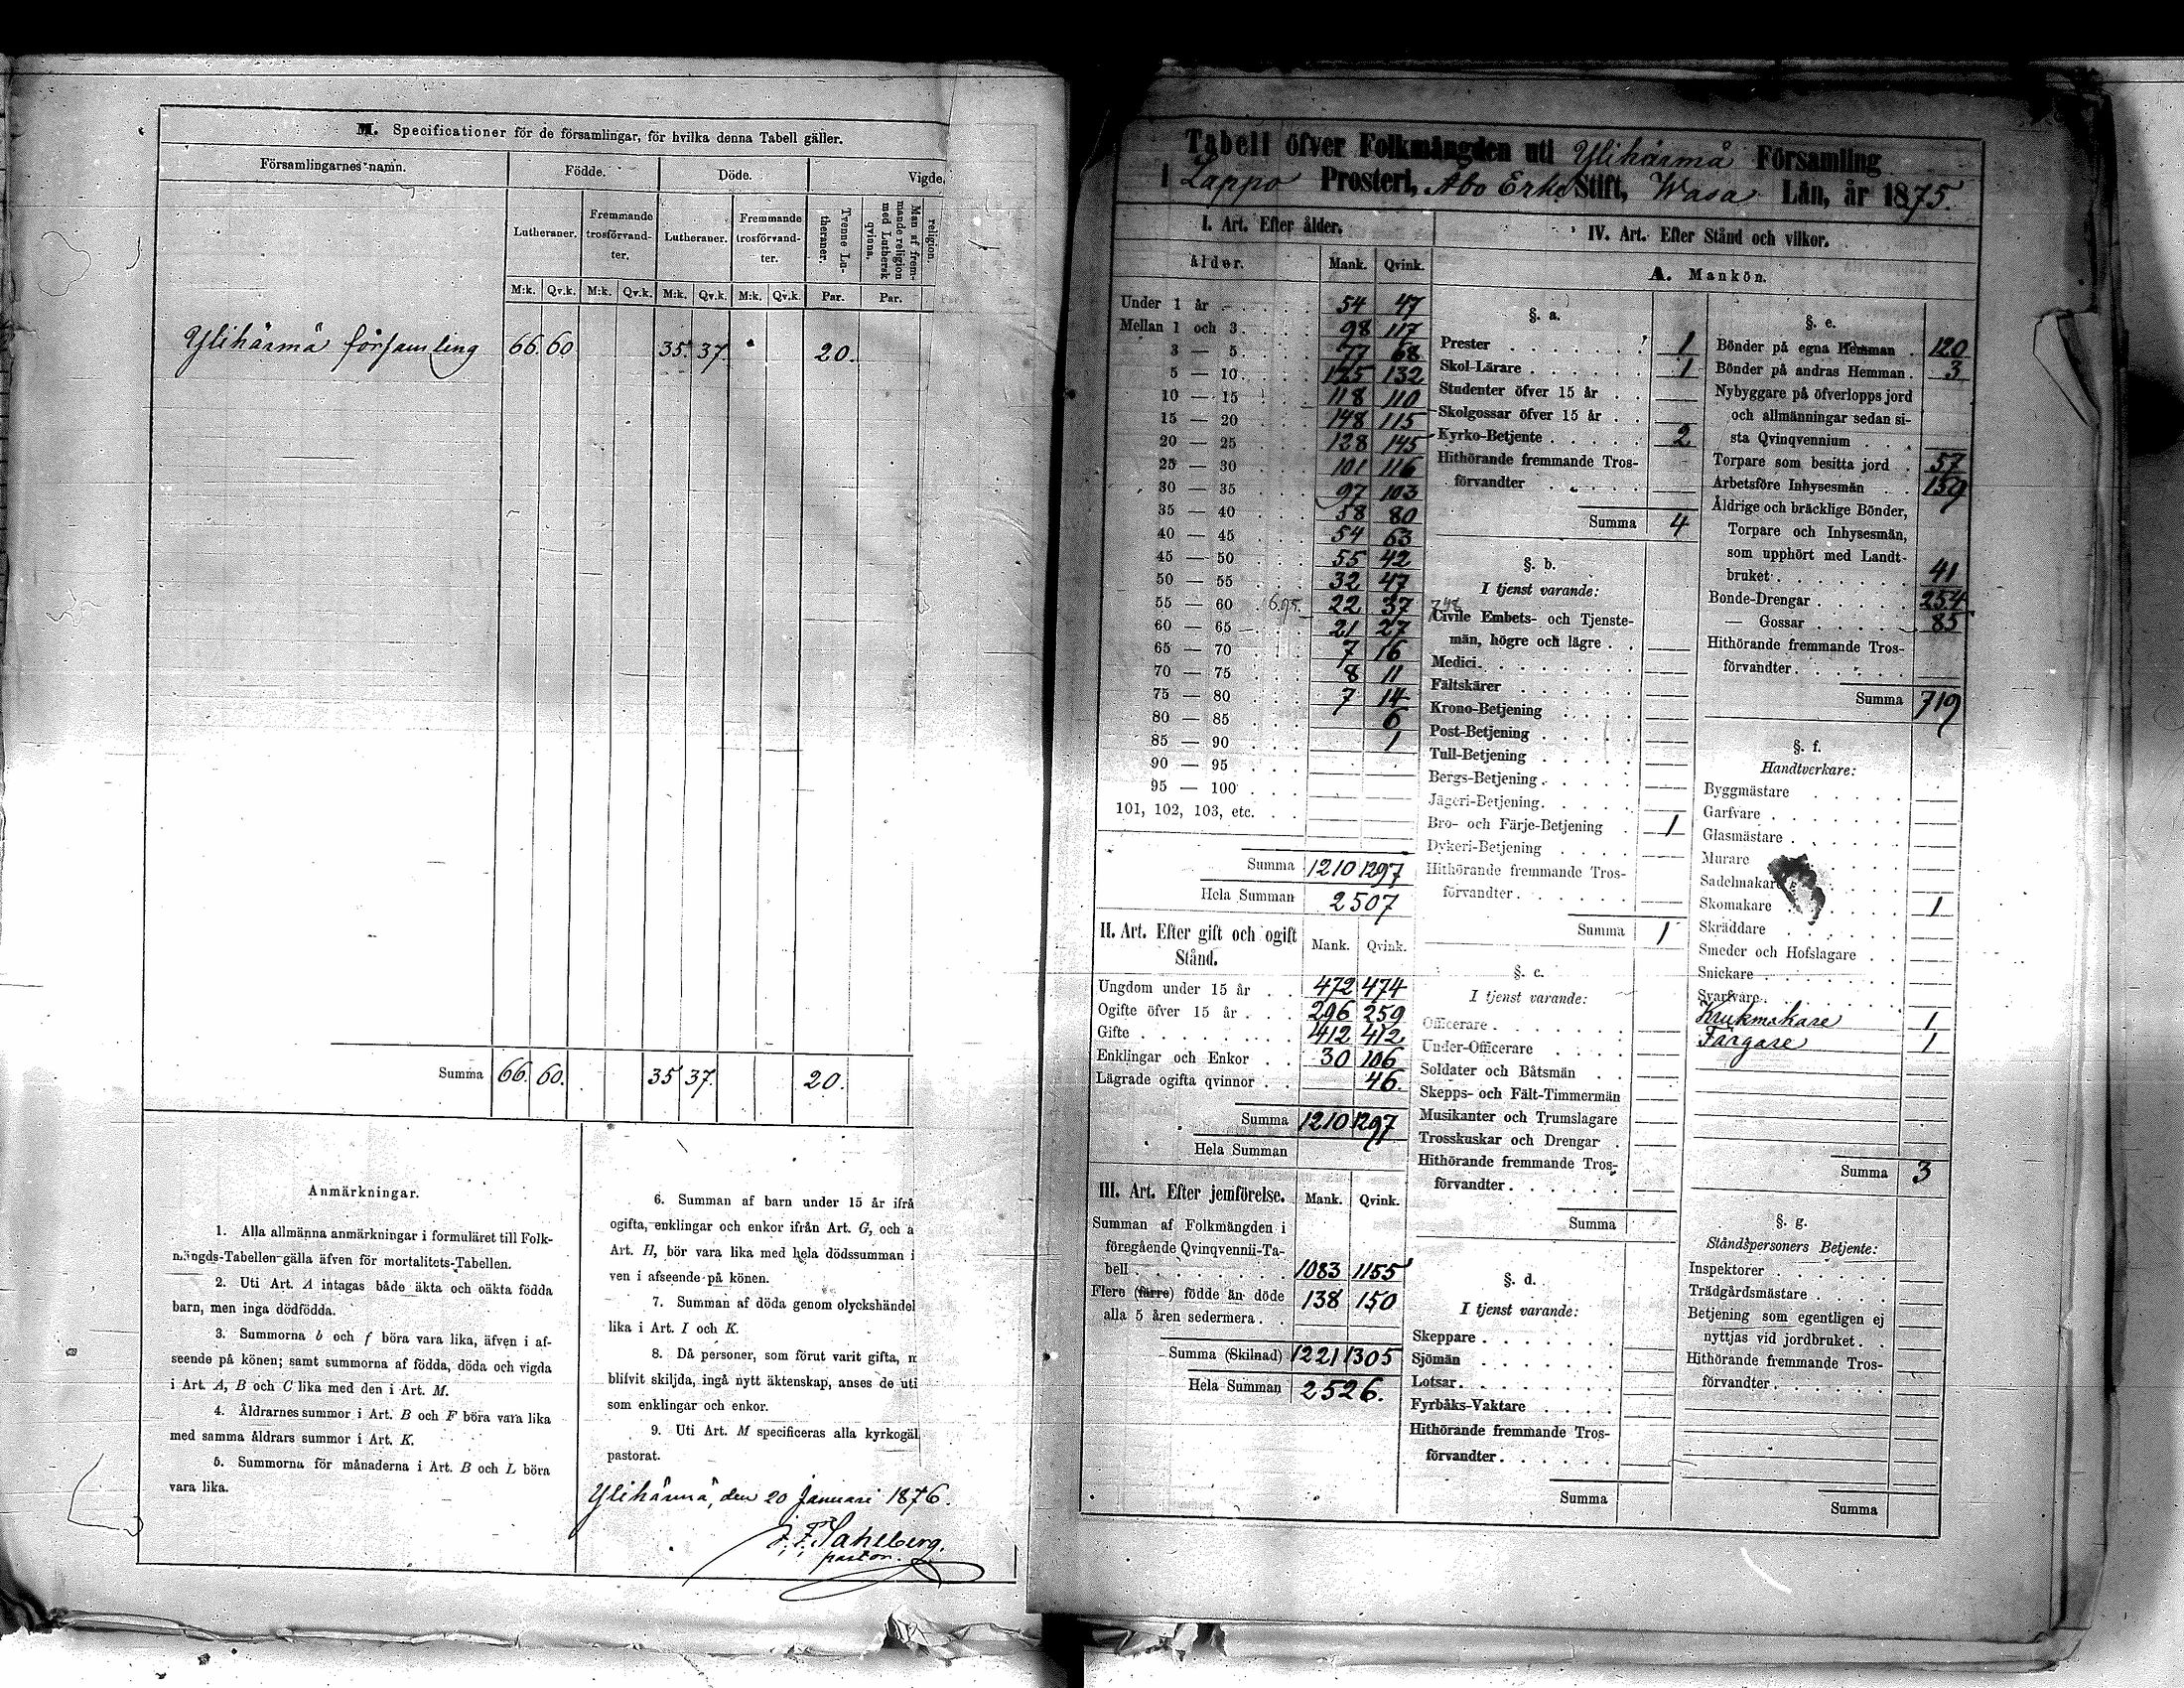 M. Specificationer för de församlingar, för hvilka denna Tabell gäller.
Församlingarnes namn. Födde. Döde. Vigde.
Lutheraner. Fremmande trosförvandter. Lutheraner. Fremmande trosförvandter. Tvenne Lutheraner. Man af fremmande religion med Luthersk qvinna. religion.
M:k. Qv.k. M:k. Qv.k. M:k. Qv.k. M:k. Qv.k. Par. Par.
Ylihärmä församling 66. 60 35. 37. 20.
Summa 66. 60. 35 37. 20.
Anmärkningar.
1. Alla allmänna anmärkningar i formuläret till Folk-
mängds-Tabellen gälla äfven för mortalitets-Tabellen.
2. Uti Art. A intagas både äkta och oäkta födda
barn, men inga dödfödda.
3. Summorna b och f böra vara lika, äfven i af-
seende på könen; samt summorna af födda, döda och vigda
i Art. A, B och C lika med den i Art. M.
4. Åldrarnes summor i Art. B och F böra vara lika
med samma åldrars summor i Art. K.
5. Summorna för månaderna i Art. B och L böra
vara lika.
6. Summan af barn under 15 år ifrå
ogifta, enklingar och enkor ifrån Art. G, och a
Art. H, bör vara lika med hela dödssumman i
ven i afseende på könen.
7. Summan af döda genom olyckshändel
lika i Art. I och K.
8. Då personer, som förut varit gifta, m
blifvit skiljda, ingå nytt äktenskap, anses de uti
som enklingar och enkor.
9. Uti Art. M specificeras alla kyrkogäl
pastorat.
Ylihärmä, den 20 Januari 1876.
J. F. Sahlberg.
pastor.
Tabell öfver Folkmängden uti Ylihärmä Församling
i Lappo Prosteri, Åbo Erke Stift, Wasa Län, år 1875.
I. Art. Efter ålder.
ålder. Mank. Qvink.
Under 1 år 54 47
Mellan 1 och 3 98 117
3 — 5 77 68
5 — 10 125 132
10 — 15 118 110
15 — 20 148 115
20 — 25 128 145
25 — 30 101 116
30 — 35 97 103
35 — 40 58 80
40 — 45 54 63
45 — 50 55 42
50 — 55 32 47
55 — 60 695. 22 37 748
60 — 65 21 27
65 — 70 7 16
70 — 75 8 11
75 — 80 7 14
80 — 85 6
85 — 90 1
90 — 95
95 — 100
101, 102, 103, etc.
Summa 1210 1297
Hela Summan 2507
II. Art. Efter gift och ogift Stånd. Mank. Qvink.
Ungdom under 15 år 472 474
Ogifte öfver 15 år 296 259
Gifte 412 412
Enklingar och Enkor 30 106
Lägrade ogifta qvinnor 46.
Summa 1210 1297
Hela Summan
III. Art. Efter jemförelse. Mank. Qvink.
Summan af Folkmängden i
föregående Qvinqvennii-Ta-
bell 1083 1155
Flere (färre) födde än döde 138 150
alla 5 åren sedermera
Summa (Skilnad) 1221 1305
Hela Summan 2526.
IV. Art. Efter Stånd och vilkor.
A. Mankön.
§. a.
Prester 1
Skol-Lärare 1
Studenter öfver 15 år
Skolgossar öfver 15 år
Kyrko-Betjente 2
Hithörande fremmande Tros-
förvandter
Summa 4
§. b.
I tjenst varande:
Civile Embets- och Tjenste-
män, högre och lägre
Medici
Fältskärer
Krono-Betjening
Post-Betjening
Tull-Betjening
Bergs-Betjening
Jägeri-Betjening
Bro- och Färje-Betjening 1
Dykeri-Betjening
Hithörande fremmande Tros-
förvandter
Summa 1
§. c.
I tjenst varande:
Officerare
Under-Officerare
Soldater och Båtsmän
Skepps- och Fält-Timmermän
Musikanter och Trumslagare
Trosskuskar och Drengar
Hithörande fremmande Tros-
förvandter
Summa
§. d.
I tjenst varande:
Skeppare
Sjömän
Lotsar
Fyrbåks-Vaktare
Hithörande fremmande Tros-
förvandter
Summa
§. e.
Bönder på egna Hemman 120
Bönder på andras Hemman 3
Nybyggare på öfverlopps jord
och allmänningar sedan si-
sta Qvinqvennium
Torpare som besitta jord 57
Arbetsföre Inhysesmän 159
Åldrige och bräcklige Bönder,
Torpare och Inhysesmän,
som upphört med Landt-
bruket 41
Bonde-Drengar 254
— Gossar 85
Hithörande fremmande Tros-
förvandter
Summa 719
§. f.
Handtverkare:
Byggmästare
Garfvare
Glasmästare
Murare
Sadelmakare
Skomakare 1
Skräddare
Smeder och Hofslagare
Snickare
Svarfvare
Krukmakare 1
Färgare 1
Summa 3
§. g.
Ståndspersoners Betjente:
Inspektorer
Trädgårdsmästare
Betjening som egentligen ej
nyttjas vid jordbruket
Hithörande fremmande Tros-
förvandter
Summa